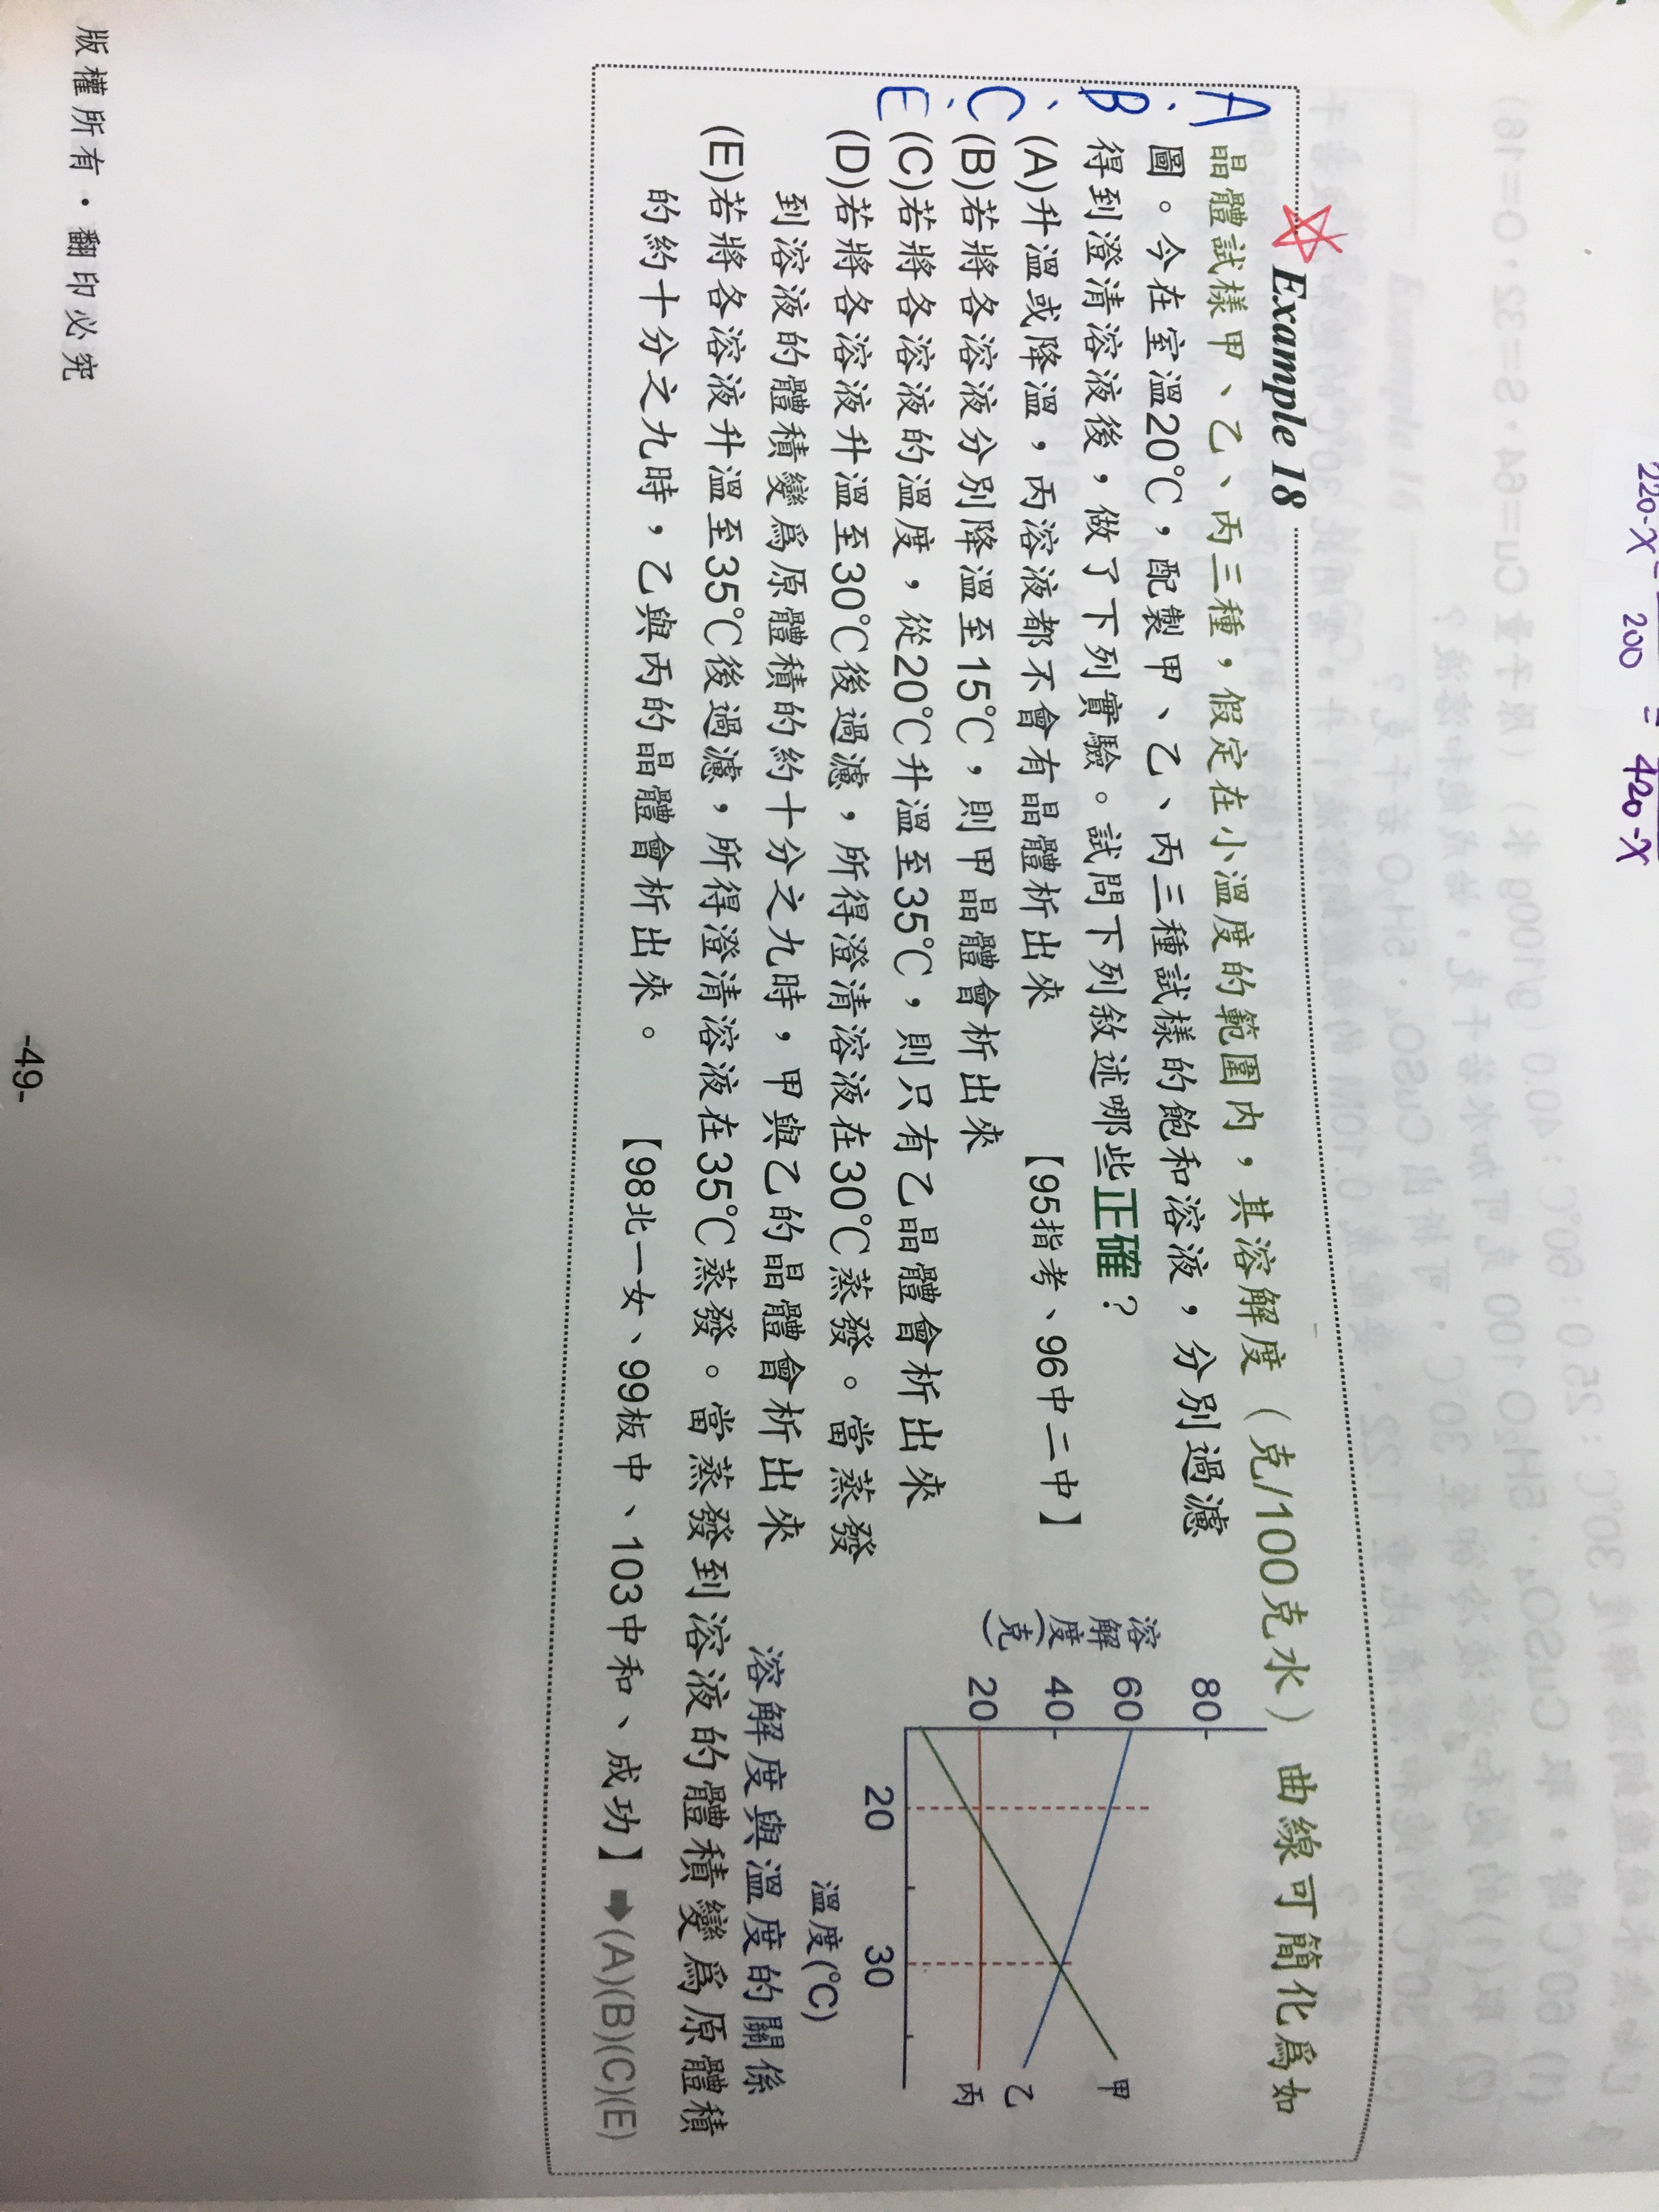 220-X
200 = 420-X
Example 18
晶體試樣甲、乙、丙三種，假定在小溫度的範圍內，其溶解度（克/100克水）曲線可簡化為如
圖。今在室溫20℃，配製甲、乙、丙三種試樣的飽和溶液，分別過濾
得到澄清溶液後，做了下列實驗。試問下列敘述哪些正確？
(A)升溫或降溫，丙溶液都不會有晶體析出來 【95指考、96中二中】
(B)若將各溶液分別降溫至15℃，則甲晶體會析出來
(C)若將各溶液的溫度，從20℃升溫至35℃，則只有乙晶體會析出來
(D)若將各溶液升溫至30℃後過濾，所得澄清溶液在30℃蒸發。當蒸發
到溶液的體積變為原體積的約十分之九時，甲與乙的晶體會析出來
(E)若將各溶液升溫至35℃後過濾，所得澄清溶液在35℃蒸發。當蒸發到溶液的體積變為原體積
的約十分之九時，乙與丙的晶體會析出來。 【98北一女、99板中、103中和、成功】➡(A)(B)(C)(E)
A、B、C、E
溶解度(克)
80
60
40
20
20
30
溫度(℃)
甲
乙
丙
溶解度與溫度的關係
版權所有・翻印必究
-49-